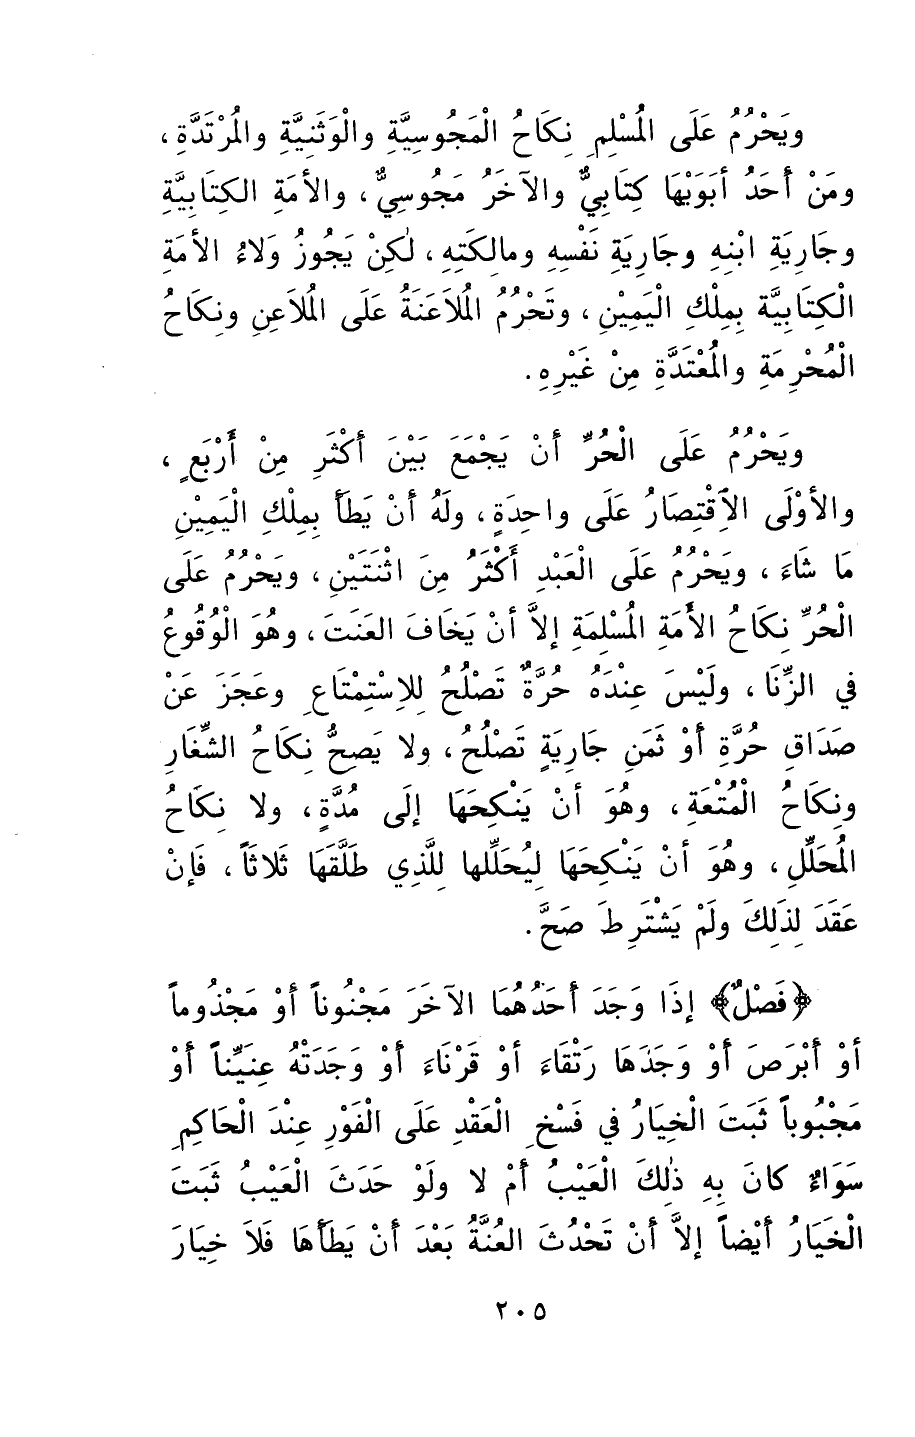 ويَحْرُمُ عَلَى المُسْلِمِ نِكَاحُ الْمَجُوسِيَّةِ والْوَثَنِيَّةِ والمُرْتَدَّةِ،
ومَنْ أَحَدُ أبَوَيْهَا كِتَابِيٌّ والآخَرُ مَجُوسِيٌّ، والأمَةِ الكِتَابِيَّةِ
وجَارِيَةِ ابْنِهِ وجَارِيَةِ نَفْسِهِ ومالِكَتِهِ، لٰكِنْ يَجُوزُ وَلاءُ الأمَةِ
الْكِتَابِيَّة بِمِلْكِ الْيَمِيْنِ، وتَحْرُمُ المُلاَعَنَةُ عَلَى المُلاَعِنِ ونِكَاحُ
الْمُحْرِمَةِ والمُعْتَدَّةِ مِنْ غَيْرِهِ.
ويَحْرُمُ عَلَى الْحُرِّ أنْ يَجْمَعَ بَيْنَ أكْثَرِ مِنْ أَرْبَعٍ،
والأوْلَى الاَقْتِصَارُ عَلَى واحِدَةٍ، ولَهُ أنْ يَطَأَ بِمِلْكِ الْيَمِيْنِ
مَا شَاءَ، ويَحْرُمُ عَلَى الْعَبْدِ أَكْثَرُ مِنَ اثْنَتَيْنِ، ويَحْرُمُ عَلَى
الْحُرِّ نِكَاحُ الأَمَةِ المُسْلِمَةِ إلاَّ أنْ يَخَافَ العَنَتَ، وهُوَ الْوُقُوعُ
في الزِّنَا، ولَيْسَ عِنْدَهُ حُرَّةٌ تَصْلُحُ لِلاِسْتِمْتَاعِ وعَجَزَ عَنْ
صَدَاقِ حُرَّةِ أوْ ثَمَنِ جَارِيَةٍ تَصْلُحُ، ولا يَصِحُّ نِكَاحُ الشِّغَارِ
ونِكَاحُ الْمُتْعَةِ، وهُوَ أنْ يَنْكِحَهَا إلَى مُدَّةٍ، ولا نِكَاحُ
المُحَلِّلِ، وهُوَ أنْ يَنْكِحَهَا لِيُحَلِّلها لِلَّذِي طَلَّقَهَا ثَلاثَاً، فَإنْ
عَقَدَ لِذَلِكَ ولَمْ يَشْتَرِطَ صَحَّ.
﴿فَصْلٌ﴾ إذَا وَجَدَ أحَدُهُمَا الآخَرَ مَجْنُوناً أوْ مَجْذُوماً
أوْ أبْرَصَ أوْ وَجَدَهَا رَتْقَاءَ أوْ قَرْنَاءَ أوْ وَجَدَتْهُ عِنِيِّناً أوْ
مَجْبُوباً ثَبَتَ الْخِيَارُ في فَسْخِ الْعَقْدِ عَلَى الْفَوْرِ عِنْدَ الْحَاكِمِ
سَوَاءٌ كانَ بِهِ ذٰلِكَ الْعَيْبُ أمْ لا ولَوْ حَدَثَ الْعَيْبُ ثَبَتَ
الْخَيَارُ أيْضاً إلاَّ أنْ تَحْدُثَ العُنَّةُ بَعْدَ أنْ يَطَأَهَا فَلاَ خِيَارَ
٢٠٥